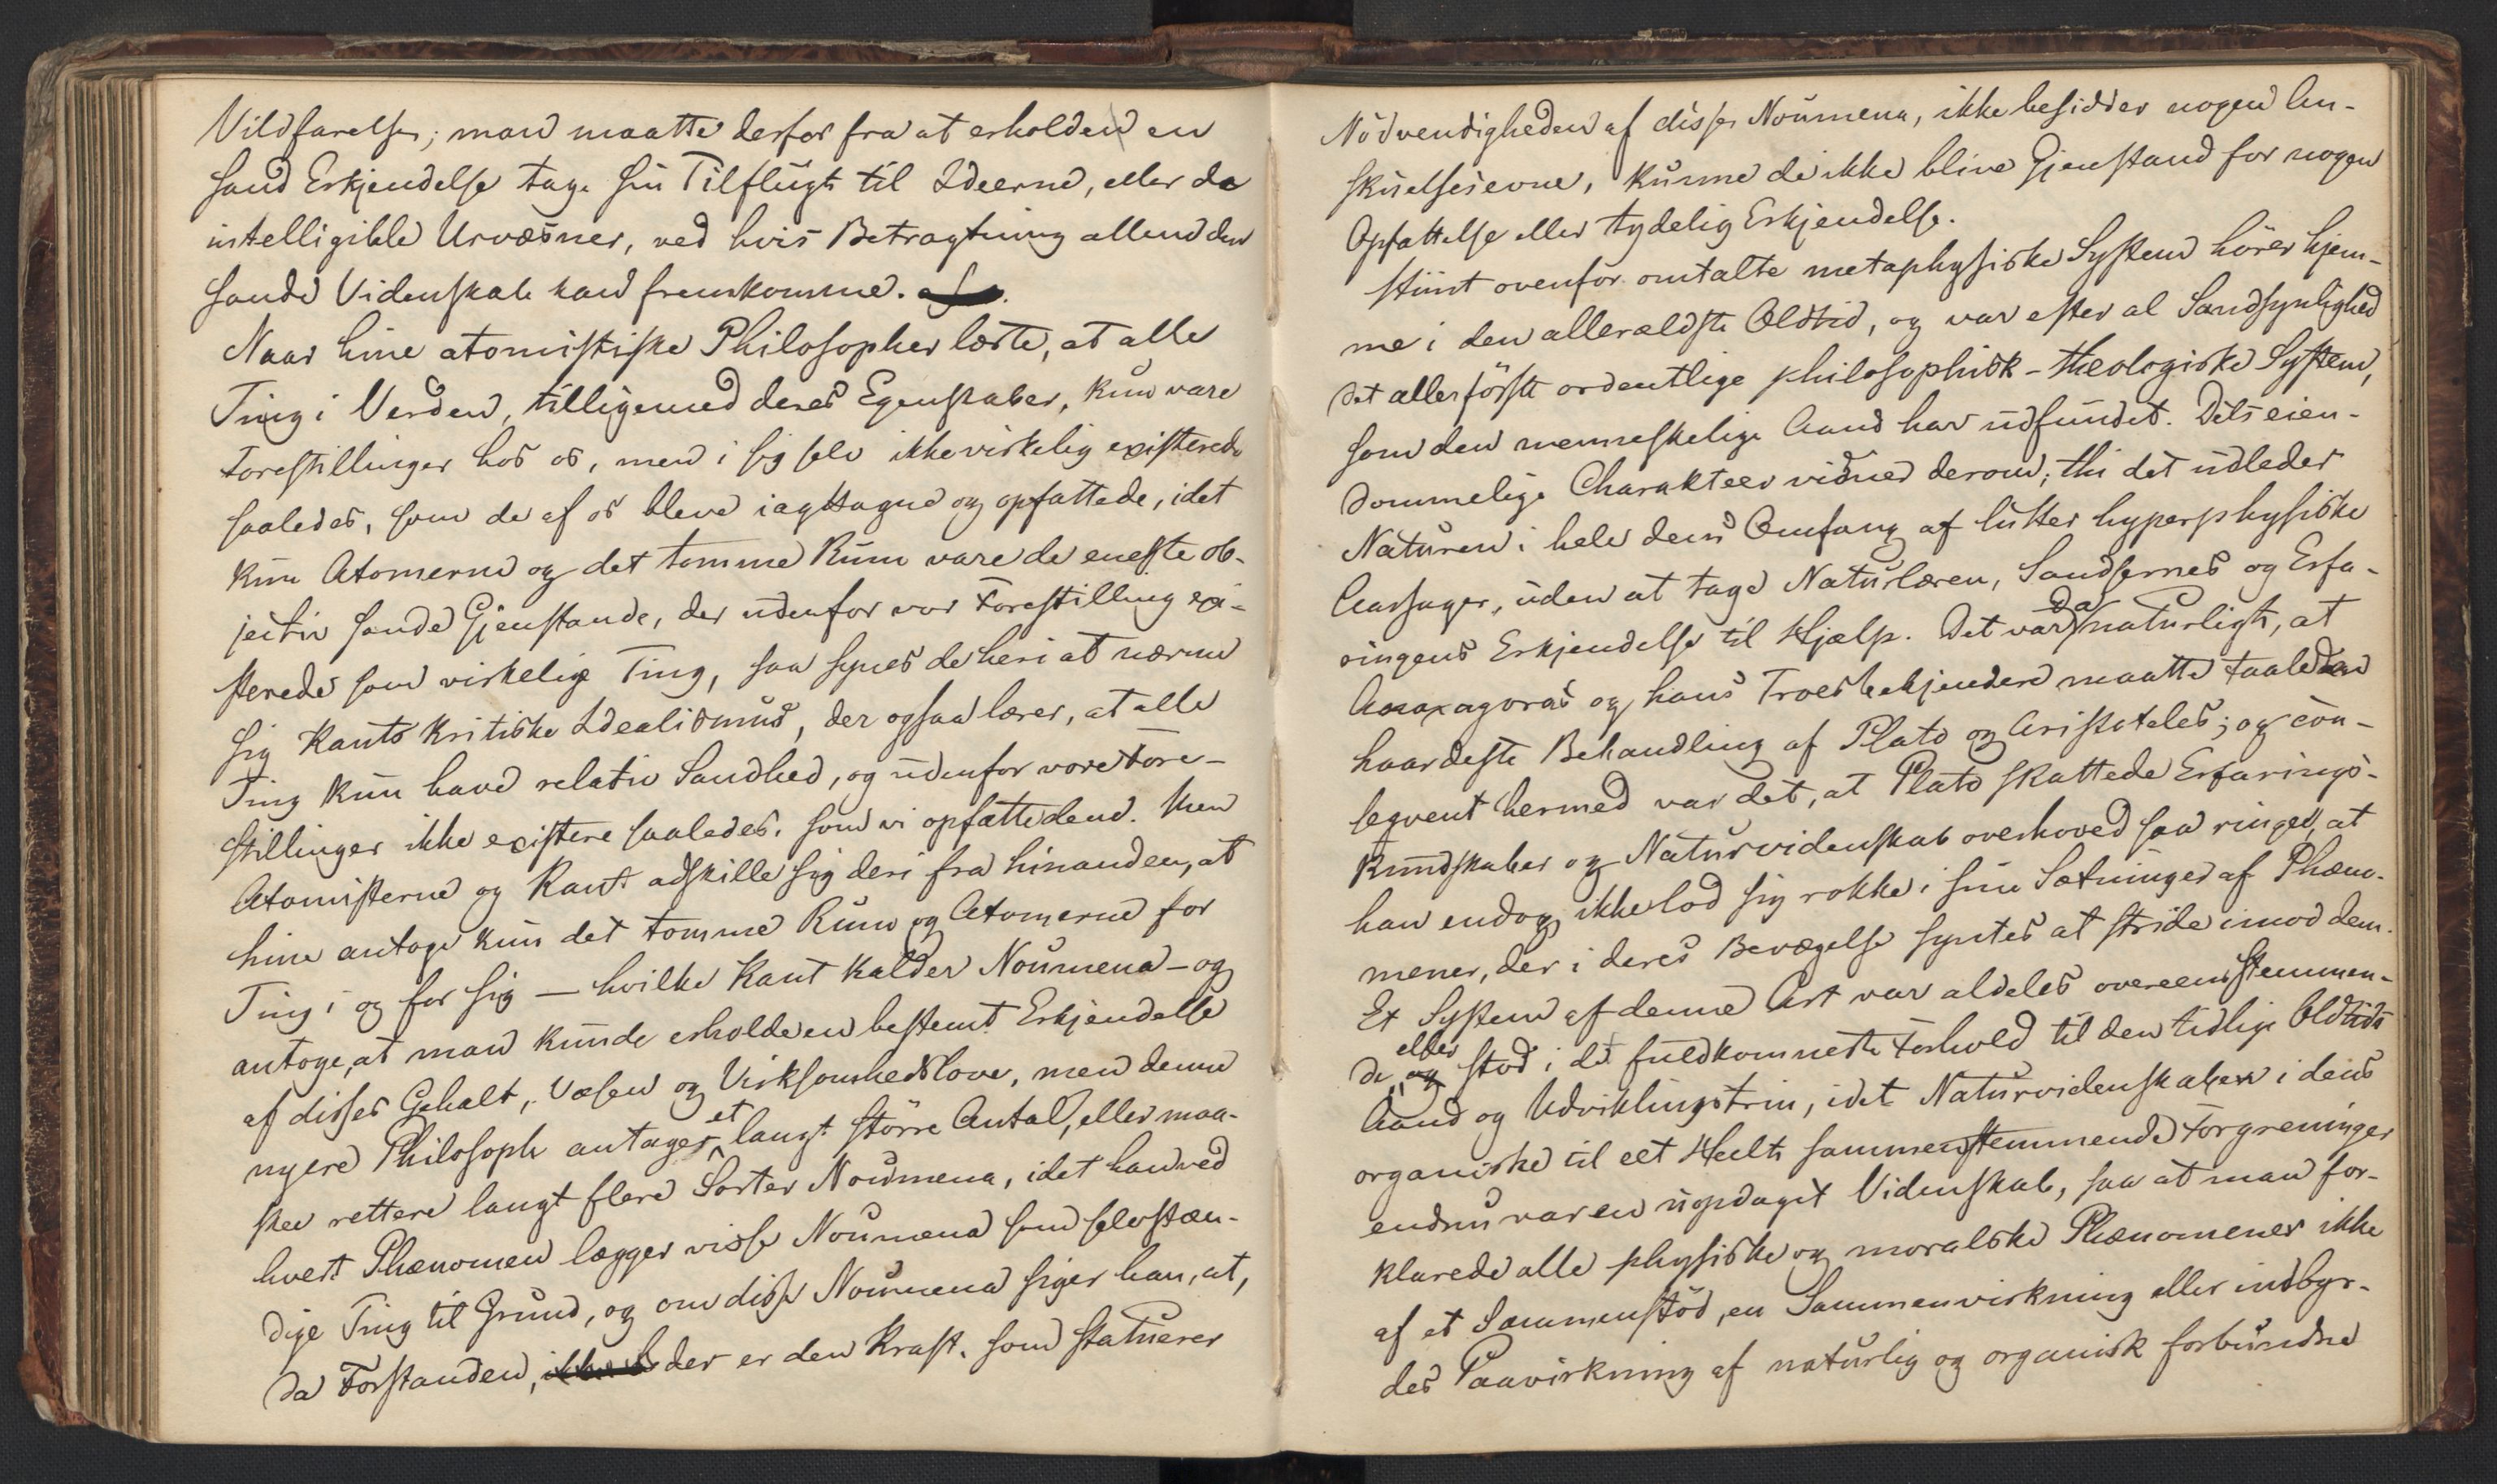 Vildfarelse; man maatte derfor fra at erholde en
sand Erkjendelse tage sin Tilflugt til Ideerne, eller de
intelligible Urvæsner, ved hvis Betragtning allene den
sande Videnskab kan fremkomme.
Naar hine atomistiske Philosopher lærte, at alle
Ting i Verden, tilligemed deres Egenskaber, kun vare
Forestillinger hos os, men i sig selv ikke virkelig existerede
saaledes, som de af os bleve iagttagne og opfattede, idet
kun Atomerne og det tomme Rum vare de eneste ob-
jectiv sande Gjenstande, der udenfor vor Forestilling exi-
sterede som virkelige Ting, saa synes de heri at nærme
sig Kants kritiske Idealismus, der ogsaa lærer, at alle
Ting kun have relativ Sandhed, og udenfor vore Fore-
stillinger ikke existere saaledes, som vi opfatte dem. Men
Atomisterne og Kant adskille sig deri fra hinanden, at
hine antage kun det tomme Rum og Atomerne for
Ting i og for sig — hvilke Kant kalder Noumena — og
antoge, at man kunde erholde en bestemt Erkjendelse
af disses Gehalt, Væsen og Virksomhedslove, men denne
nyere Philosoph antager et langt større Antal, eller maa-
skee rettere langt flere Sorter Noumena, idet han ved
hvert Phænomen lægger visse Noumena som selvstæn-
dige Ting til Grund, og om disse Noumena siger han, at,
da Forstanden, der er den Kraft, som statuerer
Nødvendigheden af disse Noumena, ikke besidder nogen An-
skuelsesevne, kunne de ikke blive Gjenstand for nogen
Opfattelse eller tydelig Erkjendelse.
Hiint ovenfor omtalte metaphysiske System hører hjem-
me i den allerældste Oldtid, og var efter al Sandsynlighed
det allerførste ordentlige philosophisk-theologiske System,
som den menneskelige Aand har udfundet. Dets eien-
dommelige Charakteer vidner derom; thi det udleder
Naturen i hele dens Omfang af lutter hyperphysiske
Aarsager, uden at tage Naturlæren, Sandsernes og Erfa-
ringens Erkjendelse til Hjælp. Det var da naturligt, at
Anaxagoras og hans Troesbekjendere maatte taale den
haardeste Behandling af Plato og Aristoteles; og con-
seqvent hermed var det, at Plato skattede Erfarings-
kundskaber og Naturvidenskab overhoved saa ringe, at
han endog ikke lod sig rokke i sine Sætninger af Phæno-
mener, der i deres Bevægelse syntes at stride imod dem.
Et System af denne Art var aldeles overeensstemmen-
de, eller stod i det fuldkomneste Forhold til den tidlige Oldtids
Aand og Udviklingstrin, idet Naturvidenskaben i dens
organiske til eet Heelt sammenstemmende Forgreninger
endnu var en uopdaget Videnskab, saa at man for-
klarede alle physiske og moralske Phænomener ikke
af et Sammenstød, en Sammenvirkning eller indbyr-
des Paavirkning af naturlig og organisk forbundne